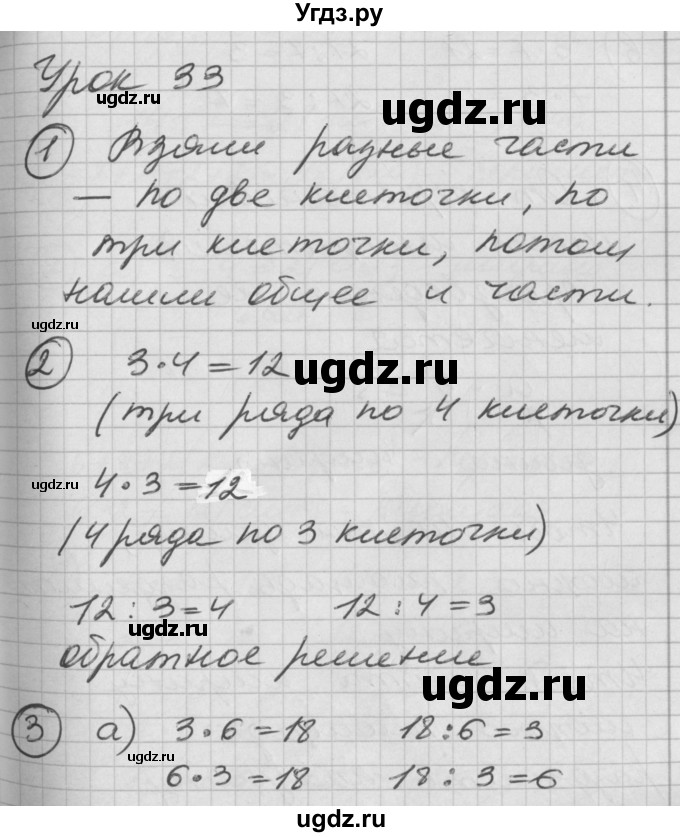 Угдз.ру
Урок 33
ugdz.ru
ugdz.ru
① Взяли разные части
— по две клеточки, по
ugdz.ru
три клеточки, потом
нашли общее и части.
ugdz.ru
② 3·4=12
ugdz.ru
(три ряда по 4 клеточки)
ugdz.ru
4·3=12
(4 ряда по 3 клеточки)
ugdz.ru
12:3=4 12:4=3
ugdz.ru
обратное решение
ugdz.ru
③ а) 3·6=18 18:6=3
ugdz.ru
6·3=18 18:3=6
ugdz.ru